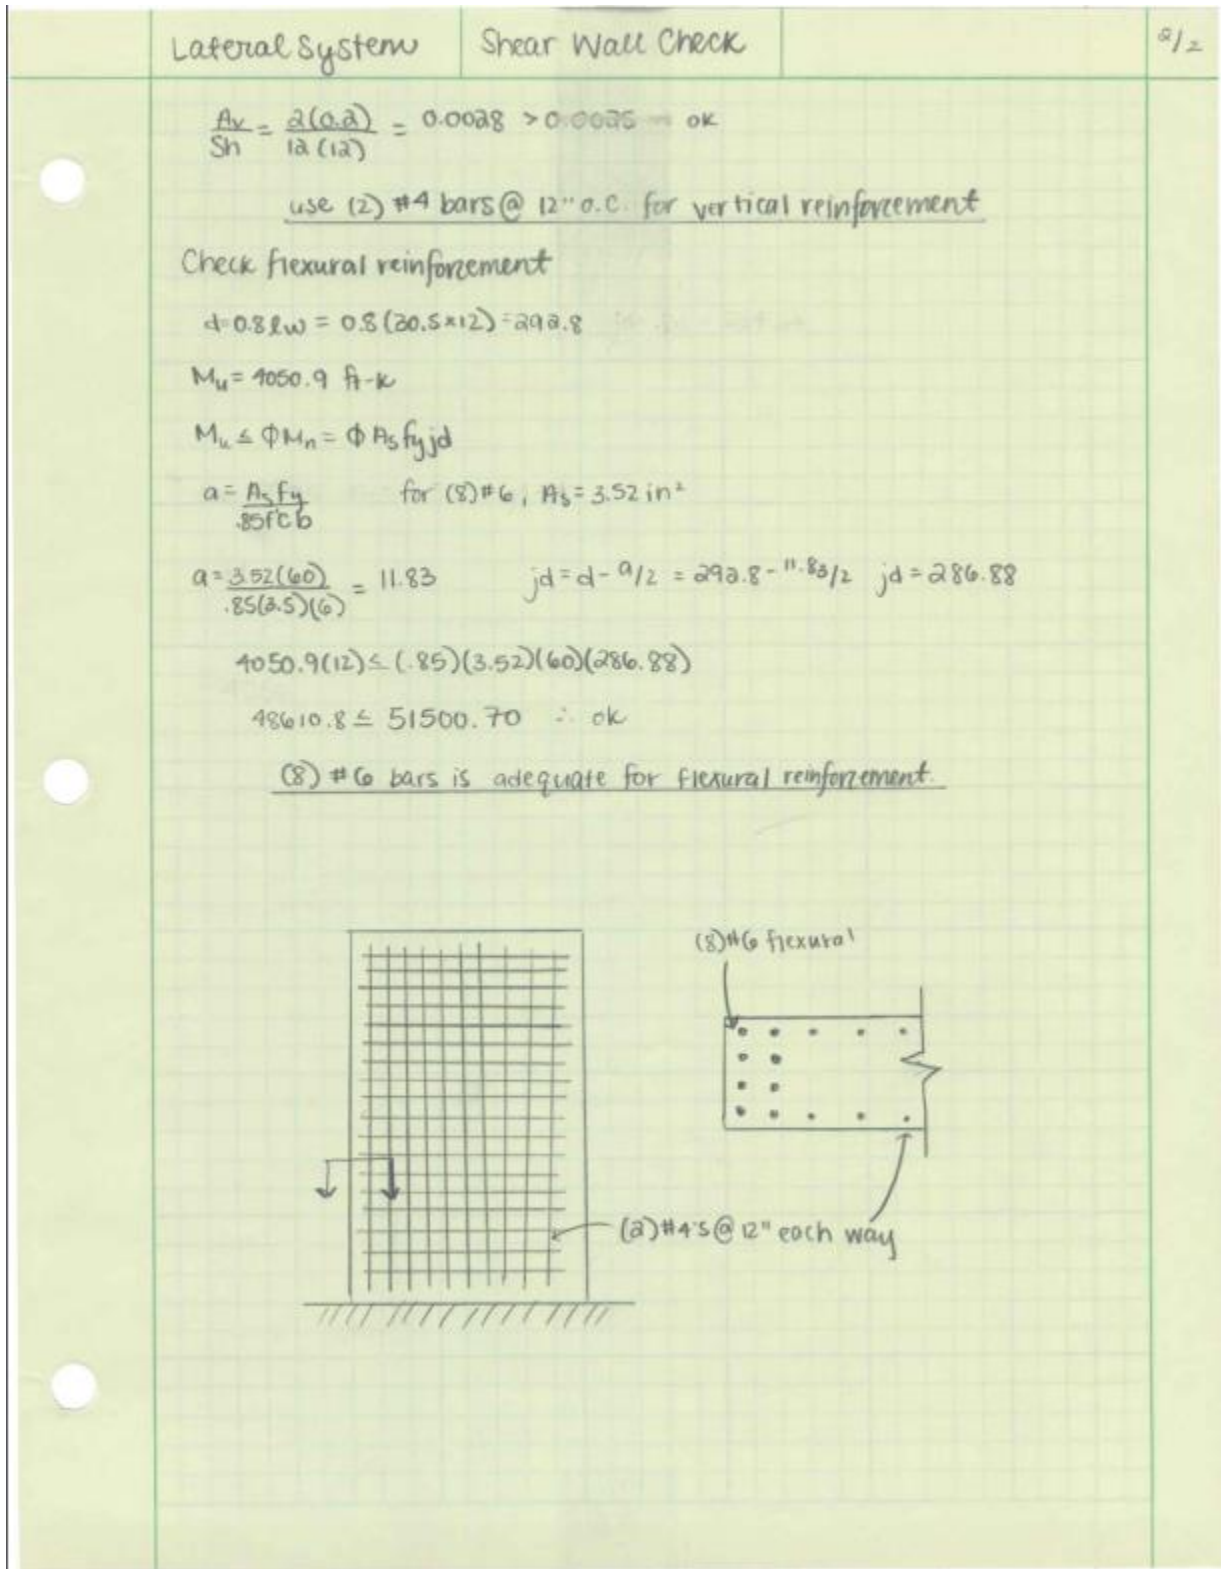 Lateral System Shear Wall Check 2/2
Av/Sh = 2(0.2)/12(12) = 0.0028 > 0.0025 ok
use (2) #4 bars @ 12" o.c. for vertical reinforcement
Check flexural reinforcement
d=0.8lw = 0.8(30.5×12)=292.8
Mu = 4050.9 ft-k
Mu ≤ ΦMn = ΦAsfyjd
a = Asfy/.85f'cb for (8)#6, As = 3.52 in²
a = 3.52(60)/.85(3.5)(6) = 11.83 jd = d - a/2 = 292.8 - 11.83/2 jd = 286.88
4050.9(12) ≤ (.85)(3.52)(60)(286.88)
48610.8 ≤ 51500.70 ∴ ok
(8) #6 bars is adequate for flexural reinforcement.
(8)#6 flexural
(2)#4's@12" each way